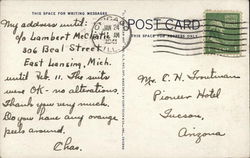 THIS SPACE FOR WRITING MESSAGES
POST CARD
My address until:
c/o Lambert
306 Beal Street
East Lansing, Mich.
until Feb. 11. The suits
were OK - no alterations.
Thank you very much.
Do you have any orange
peels around.
Chas.
Mr. E. H.
Pioneer Hotel
Tucson,
Arizona